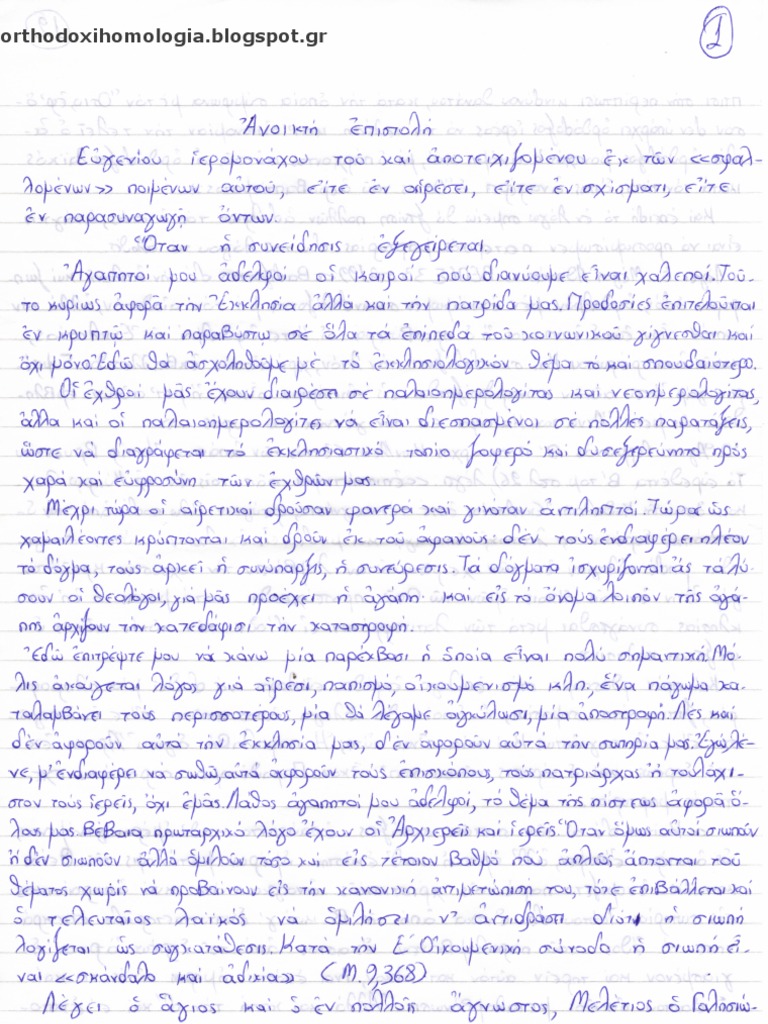 orthodoxihomologia.blogspot.gr
1
Ἀνοικτή ἐπιστολή
Εὐγενίου ἱερομονάχου τοῦ καί ἀποτειχιζομένου ἐκ τῶν <<σφαλ-
λομένων>> ποιμένων αὐτοῦ, εἴτε ἐν αἱρέσει, εἴτε ἐν σχίσματι, εἴτε
ἐν παρασυναγωγῇ ὄντων.
Ὅταν ἡ συνείδησις ἐξεγείρεται.
Ἀγαπητοί μου ἀδελφοί οἱ καιροί πού διανύουμε εἶναι χαλεποί. Τοῦ-
το κυρίως ἀφορᾶ τήν Ἐκκλησία ἀλλά καί τήν πατρίδα μας. Προδοσίες ἐπιτελοῦνται
ἐν κρυπτῷ καί παραβύστῳ σέ ὅλα τά ἐπίπεδα τοῦ κοινωνικοῦ γίγνεσθαι καί
ὄχι μόνο. Ἐδῶ θά ἀσχοληθοῦμε μέ τό ἐκκλησιολογικόν θέμα τό καί σπουδαιότερο.
Οἱ ἐχθροί μᾶς ἔχουν διαιρέσει σέ παλαιοημερολογίτας καί νεοημερολογίτας,
ἀλλά καί οἱ παλαιοημερολογίτες νά εἶναι διεσπασμένοι σέ πολλές παρατάξεις,
ὥστε νά διαγράφεται τό ἐκκλησιαστικό τοπίο ζοφερό καί δυσεξερεύνητο πρός
χαρά καί εὐφροσύνη τῶν ἐχθρῶν μας.
Μέχρι τώρα οἱ αἱρετικοί δροῦσαν φανερά καί γινόταν ἀντιληπτοί. Τώρα ὡς
χαμαιλέοντες κρύπτονται καί δροῦν ἐκ τοῦ ἀφανοῦς δέν τούς ἐνδιαφέρει πλέον
τό δόγμα, τούς ἀρκεῖ ἡ συνύπαρξις, ἡ συνεύρεσις. Τα δόγματα ἰσχυρίζονται ἄς τά λύ-
σουν οἱ θεολόγοι, γιά μᾶς προέχει ἡ ἀγάπη. καί εἰς τό ὄνομα λοιπόν τῆς ἀγά-
πης ἀρχίζουν τήν κατεδάφισι τήν καταστροφή.
Ἐδῶ ἐπιτρέψτε μου νά κάνω μία παρέκβασι ἡ ὁποία εἶναι πολύ σημαντική. Μό-
λις ἀκούγεται λόγος γιά αἵρεσι, παπισμό, οἰκουμενισμό κλπ., ἕνα πάγωμα κα-
ταλαμβάνει τούς περισσοτέρους, μία θά λέγαμε ἀγκύλωσι, μία ἀποστροφή. Λές καί
δέν ἀφοροῦν αὐτά τήν ἐκκλησία μας, δέν ἀφοροῦν αὐτά τήν σωτηρία μας. Ἐγώ λέ-
νε, μ' ἐνδιαφέρει νά σωθῶ, αὐτά ἀφοροῦν τούς ἐπισκόπους, τούς πατριάρχας ἤ τουλάχι-
στον τούς ἱερεῖς, ὄχι ἐμᾶς. Λάθος ἀγαπητοί μου ἀδελφοί, τό θέμα τῆς πίστεως ἀφορᾶ ὅ-
λους μας. Βέβαια πρωταρχικό λόγο ἔχουν οἱ Ἀρχιερεῖς καί ἱερεῖς. Ὅταν ὅμως αὐτοί σιωποῦν
ἤ δέν σιωποῦν ἀλλά ὁμιλοῦν τόσο καί εἰς τέτοιον βαθμό πού ἁπλῶς ἅπτονται τοῦ
θέματος χωρίς νά προβαίνουν εἰς τήν κανονική ἀντιμετώπιση του, τότε ἐπιβάλλεται καί
ὁ τελευταῖος λαϊκός νά ὁμιλήσει ν' ἀντιδράσει διότι ἡ σιωπή
λογίζεται ὡς συγκατάθεσις. Κατά τήν Ε΄ Οἰκουμενική σύνοδο ἡ σιωπή εἶ-
ναι <<σκάνδαλο καί ἀδικία>> (Μ.9,368)
Λέγει ὁ ἅγιος καί ὁ ἐν πολλοῖς ἄγνωστος, Μελέτιος ὁ Γαλησιώ-